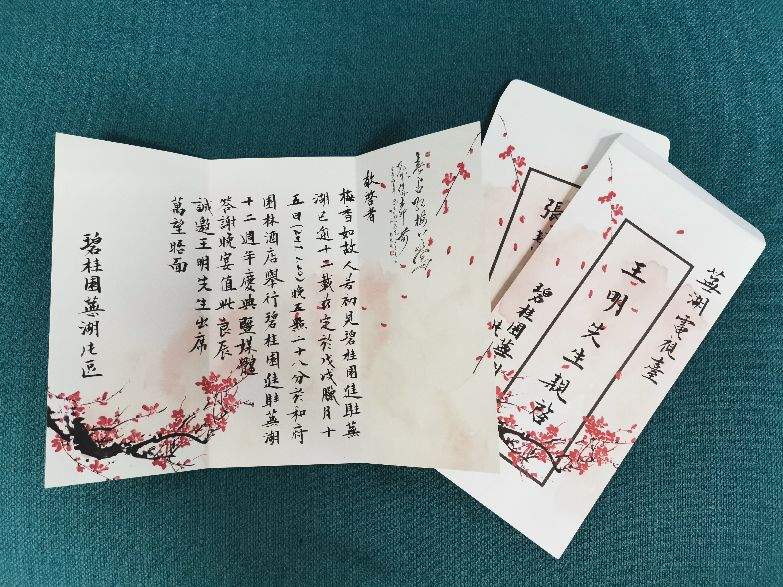 敬啓者
梅香如故人若初見碧桂園進駐蕪
湖已逾十二載茲定於戊戌臘月十
五日晚五點二十八分於和府
園林酒店舉行碧桂園進駐蕪湖
十二週年慶典暨媒體
答謝晚宴值此良辰
誠邀王明先生出席
萬望晤面
碧桂園蕪湖片區
蕪湖電視臺
王明先生親啓
張
碧桂園蕪